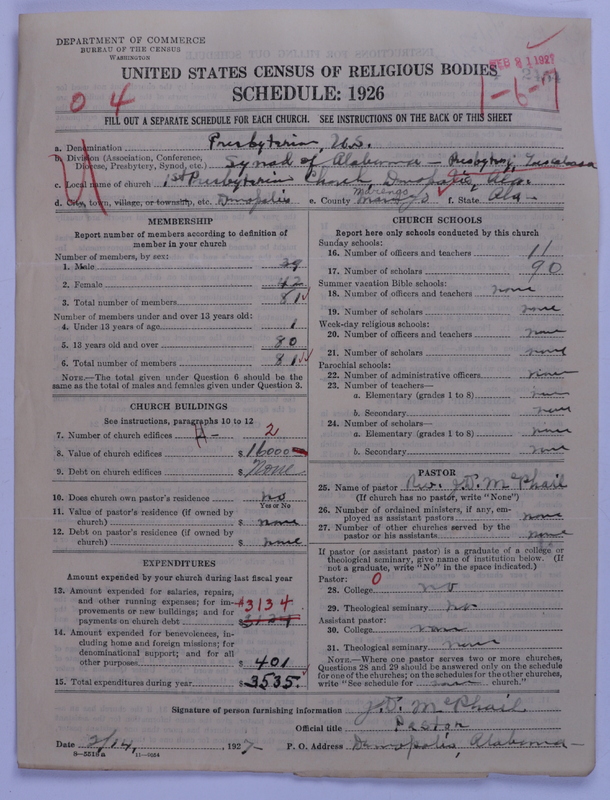 DEPARTMENT OF COMMERCE
BUREAU OF THE CENSUS
WASHINGTON
FEB 21 1927
UNITED STATES CENSUS OF RELIGIOUS BODIES
SCHEDULE: 1926
1-6-7
04
FILL OUT A SEPARATE SCHEDULE FOR EACH CHURCH. SEE INSTRUCTIONS ON THE BACK OF THIS SHEET
a. Denomination Presbyterian, U.S.
b. Division (Association, Conference, Diocese, Presbytery, Synod, etc.) Synod of Alabama - Presbytery, Tuscaloosa
c. Local name of church 1st Presbyterian Church Demopolis, Ala.
d. City, town, village, or township, etc. Demopolis e. County Marengo f. State Ala-
MEMBERSHIP
Report number of members according to definition of member in your church
Number of members, by sex:
1. Male 39
2. Female 42
3. Total number of members 81
Number of members under and over 13 years old:
4. Under 13 years of age 1
5. 13 years old and over 80
6. Total number of members 81
NOTE.—The total given under Question 6 should be the same as the total of males and females given under Question 3.
CHURCH BUILDINGS
See instructions, paragraphs 10 to 12
7. Number of church edifices 2
8. Value of church edifices $16000
9. Debt on church edifices $ None
10. Does church own pastor's residence no
Yes or No
11. Value of pastor's residence (if owned by church) $ none
12. Debt on pastor's residence (if owned by church) $ none
EXPENDITURES
Amount expended by your church during last fiscal year
13. Amount expended for salaries, repairs, and other running expenses; for improvements or new buildings; and for payments on church debt $3134
14. Amount expended for benevolences, including home and foreign missions; for denominational support; and for all other purposes $401
15. Total expenditures during year $3535
CHURCH SCHOOLS
Report here only schools conducted by this church
Sunday schools:
16. Number of officers and teachers 11
17. Number of scholars 90
Summer vacation Bible schools:
18. Number of officers and teachers none
19. Number of scholars none
Week-day religious schools:
20. Number of officers and teachers none
21. Number of scholars none
Parochial schools:
22. Number of administrative officers none
23. Number of teachers—
a. Elementary (grades 1 to 8) none
b. Secondary none
24. Number of scholars—
a. Elementary (grades 1 to 8) none
b. Secondary none
PASTOR
25. Name of pastor Rev. J.D. McPhail
(If church has no pastor, write "None")
26. Number of ordained ministers, if any, employed as assistant pastors none
27. Number of other churches served by the pastor or his assistants none
If pastor (or assistant pastor) is a graduate of a college or theological seminary, give name of institution below. (If not a graduate, write "No" in the space indicated.)
Pastor: 0
28. College no
29. Theological seminary No
Assistant pastor:
30. College none
31. Theological seminary none
NOTE.—Where one pastor serves two or more churches, Questions 28 and 29 should be answered only on the schedule for one of the churches; on the schedules for the other churches, write "See schedule for church."
Signature of person furnishing information J.D. McPhail
Official title Pastor
Date 2/14, 1927- P. O. Address Demopolis, Alabama-
8-5319a 11-8034